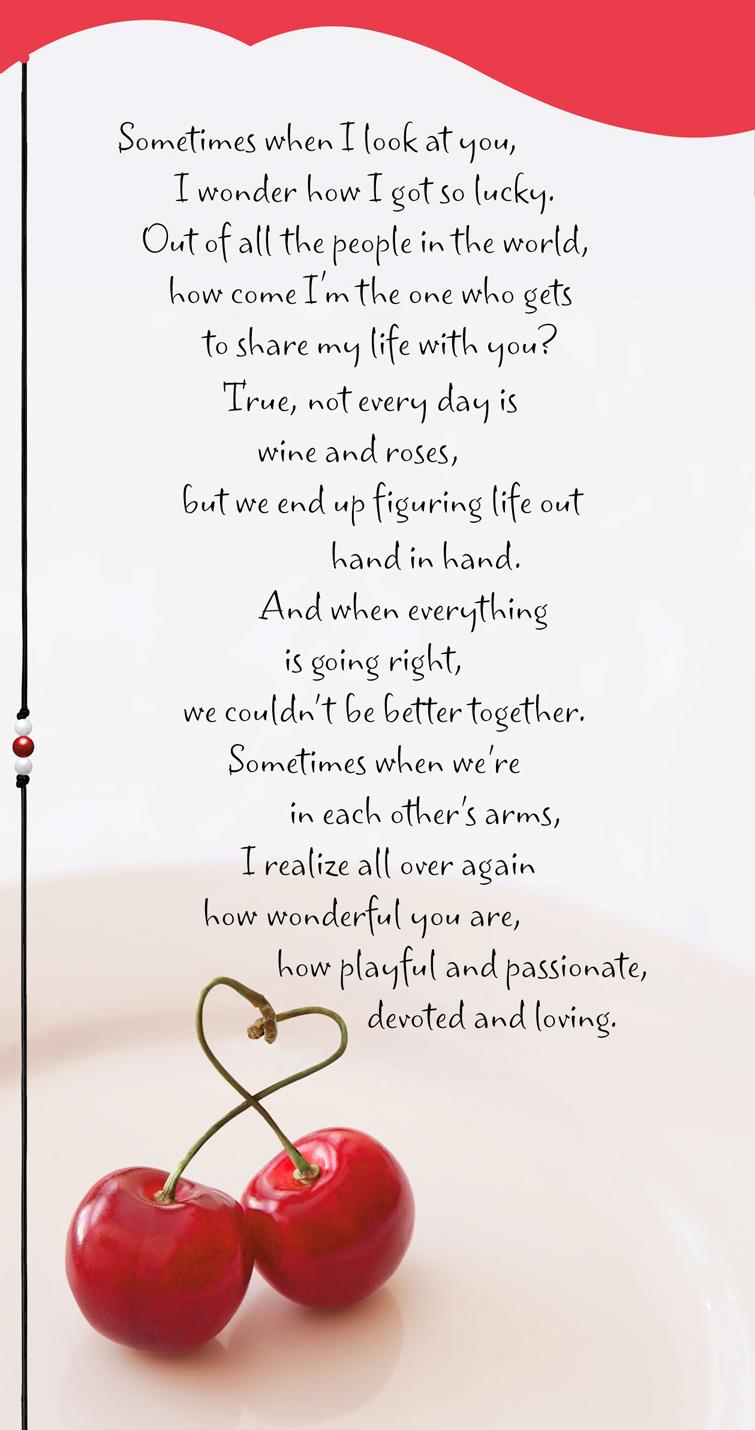 Sometimes when I look at you,
I wonder how I got so lucky.
Out of all the people in the world,
how come I'm the one who gets
to share my life with you?
True, not every day is
wine and roses,
but we end up figuring life out
hand in hand.
And when everything
is going right,
we couldn't be better together.
Sometimes when we're
in each other's arms,
I realize all over again
how wonderful you are,
how playful and passionate,
devoted and loving.